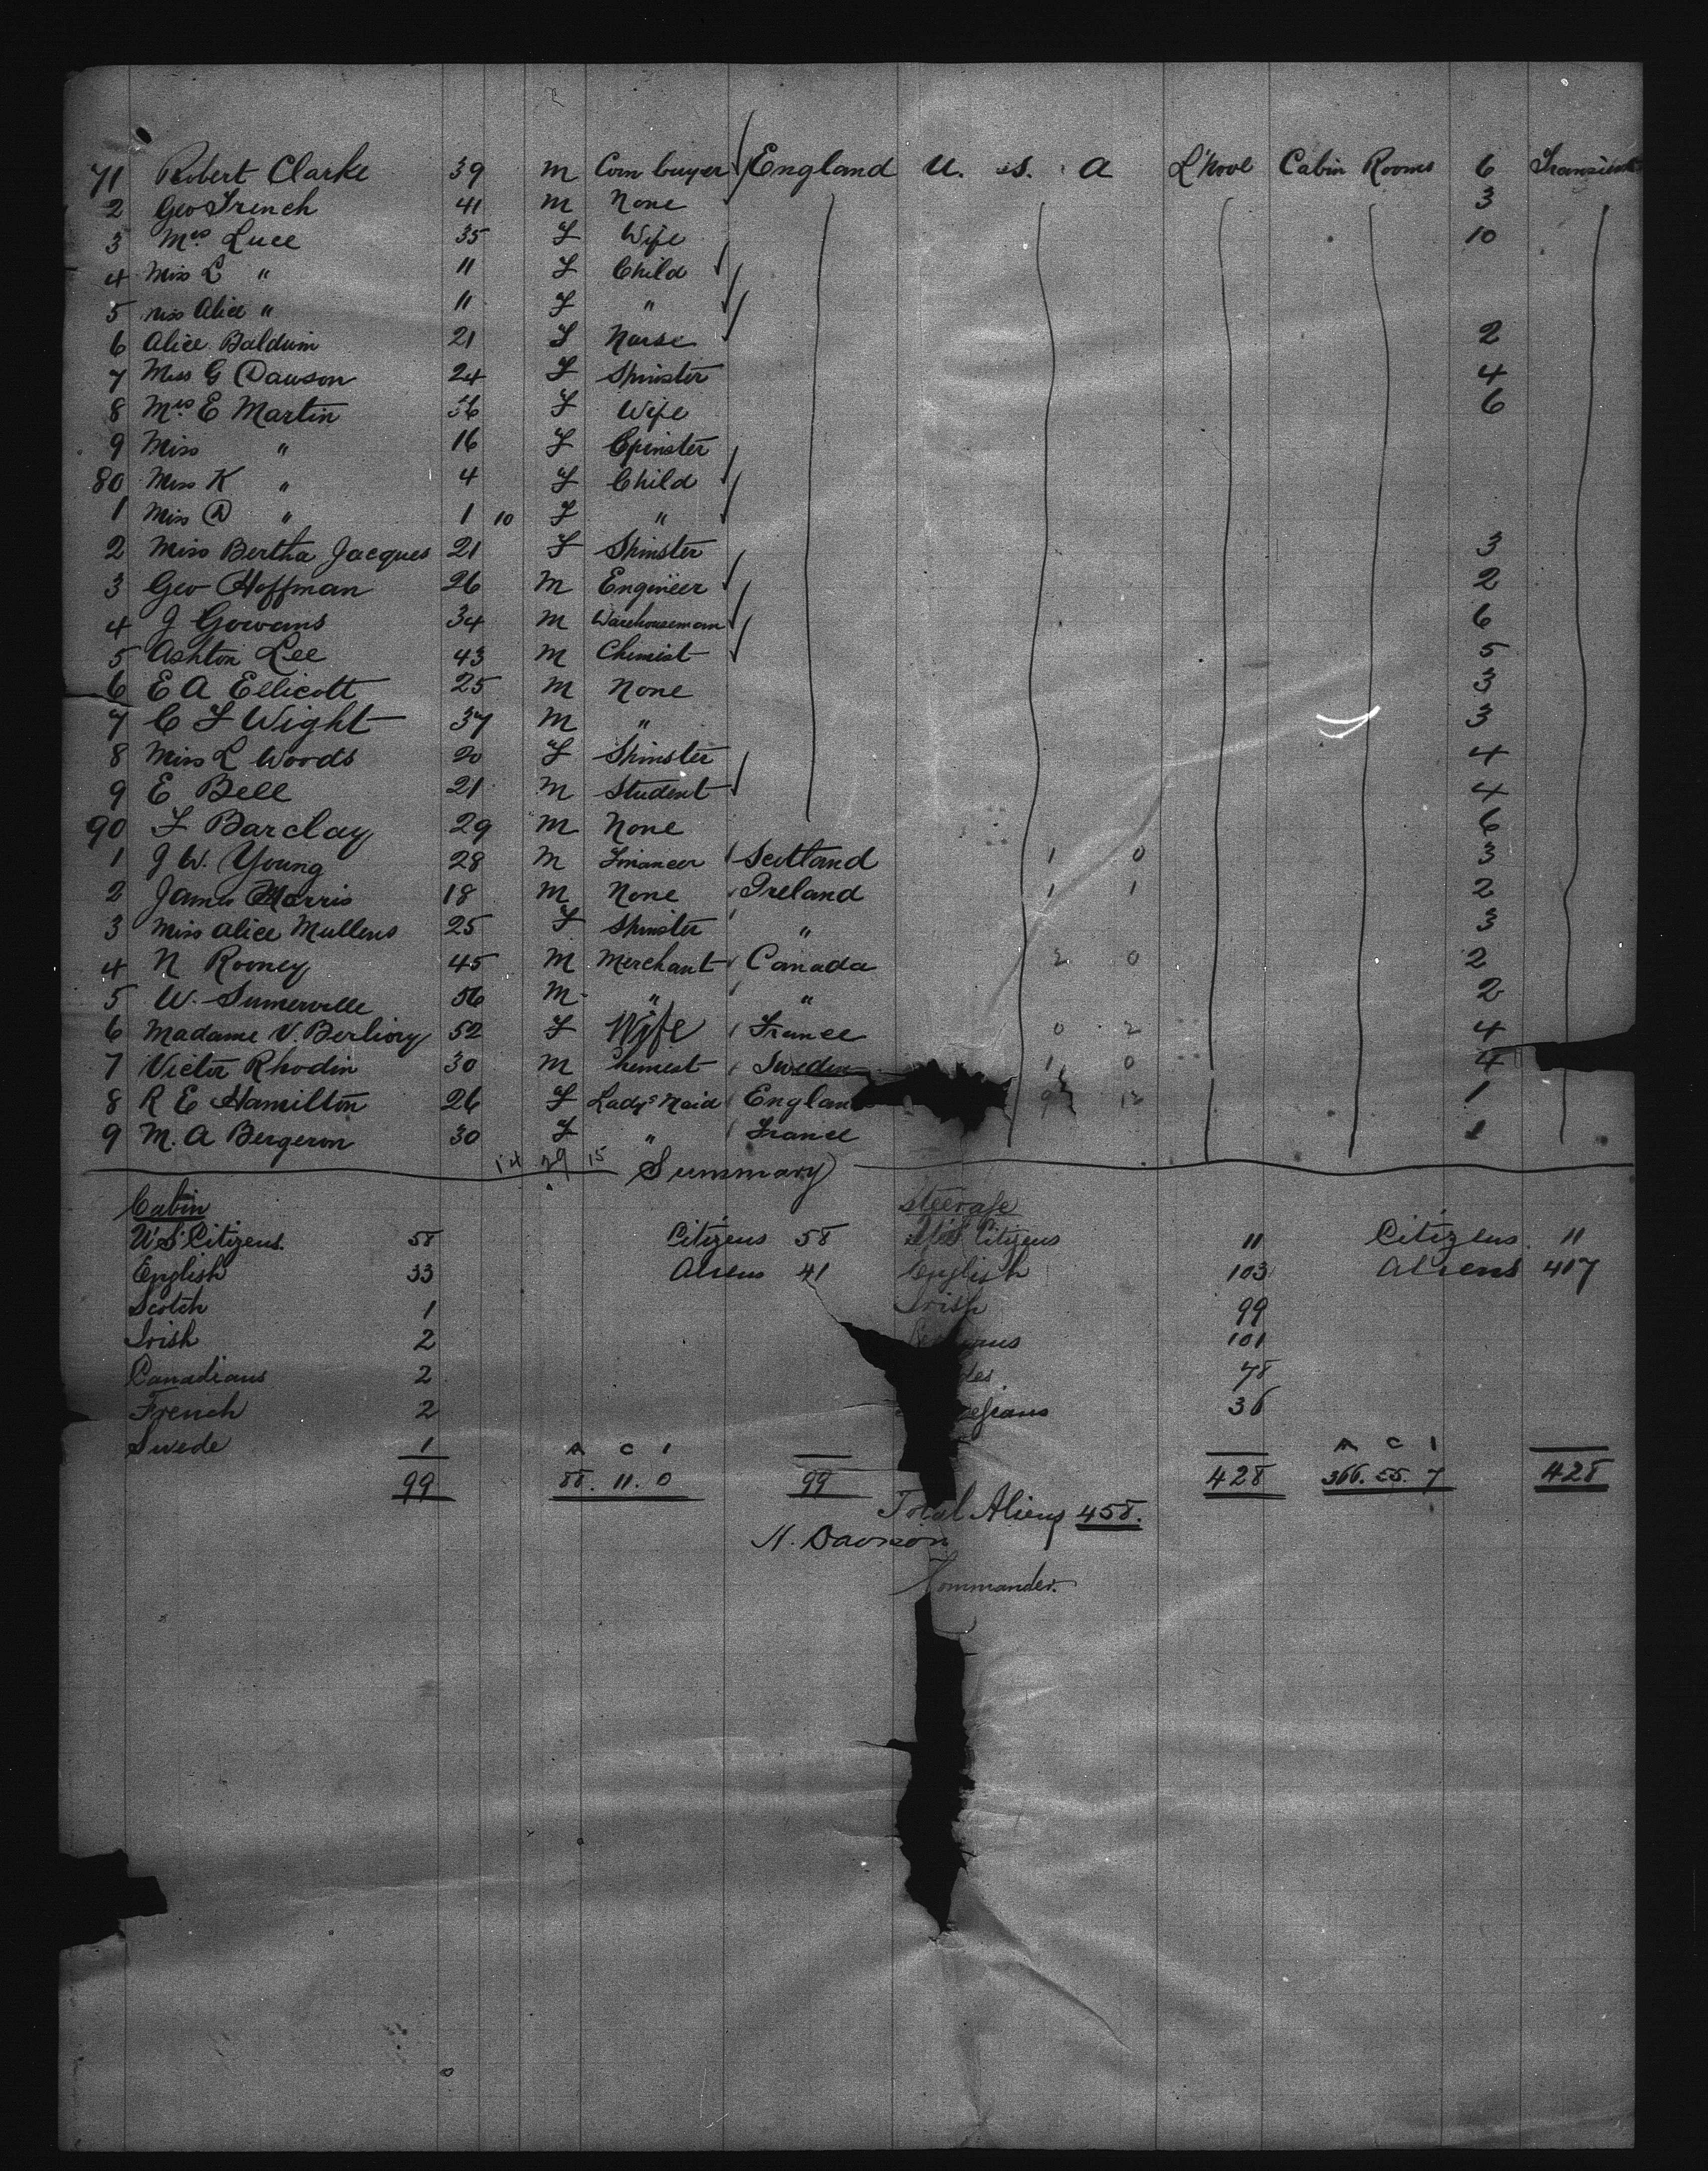 71 Robert Clarke 39 M Corn buyer England U. S. A L'pool Cabin Rooms 6 Transient
2 Geo French 41 M None 3
3 Mrs Luce 35 F Wife 10
4 Miss L " 11 F Child
5 Miss Alice " 11 F "
6 Alice Baldwin 21 F Nurse 2
7 Miss G Dawson 24 F Spinster 4
8 Mrs E Martin 36 F Wife 6
9 Miss " 16 F Spinster
80 Miss K " 4 F Child
1 Miss D " 1 10 F "
2 Miss Bertha Jacques 21 F Spinster 3
3 Geo Hoffman 26 M Engineer 2
4 J Gowans 34 M Warehouseman 6
5 Ashton Lee 43 M Chemist 5
6 E A Ellicott 25 M None 3
7 C F Wight 37 M " 3
8 Miss L Woods 20 F Spinster 4
9 E Bell 21 M Student 4
90 F Barclay 29 M None 6
1 J W. Young 28 M Financer Scotland 1 0 3
2 James Morris 18 M None Ireland 1 1 2
3 Miss Alice Mullens 25 F Spinster " 3
4 N Rooney 45 M Merchant Canada 2 0 2
5 W. Sumerville 56 M " " 2
6 Madame V. Berliory 52 F Wife France 0 2 4
7 Victor Rhodin 30 M Chemist Sweden 1 0 4
8 R E Hamilton 26 F Lady's Maid England 1
9 M. A Bergeron 30 F " France 1
14 29 15 Summary
Cabin Steerage
U S Citizens 58 Citizens 58 U S Citizens 11 Citizens 11
English 33 Aliens 41 English 103 Aliens 417
Scotch 1 Irish 99
Irish 2 101
Canadians 2 78
French 2 36
Swede 1 A C I A C I
99 88. 11. 0 99 428 366. 55. 7 428
Total Aliens 458.
H. Davison
Commander.